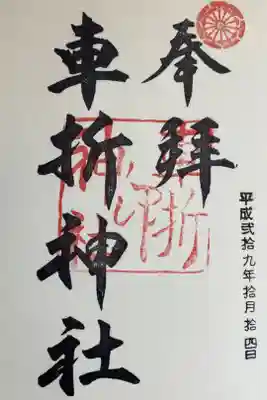 奉拝
車折神社
平成弐拾九年拾月拾四日